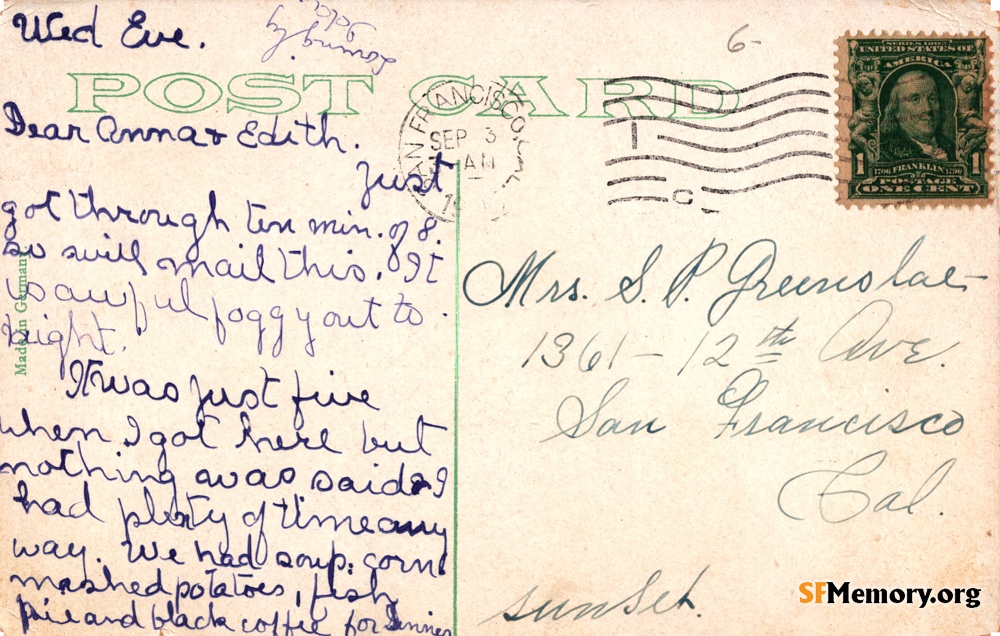 Wed Eve.
Lovingly
6-
POST CARD
SAN FRANCISCO, CAL.
SEP 3
AM
SERIES 1902
UNITED STATES OF
AMERICA
1706 FRANKLIN 1790
POSTAGE
1 ONE CENT 1
Dear Anna & Edith.
Just
got through ten min. of 8.
so will mail this. It
is awful foggy out to
night.
It was just five
when I got here but
nothing was said & I
had plenty of time any
way. We had soup, corn
mashed potatoes, fish
pie and black coffee for Dinner
Made in Germany
Mrs. S. P.
1361 - 12th Ave.
San Francisco
Cal.
sunset.
SFMemory.org